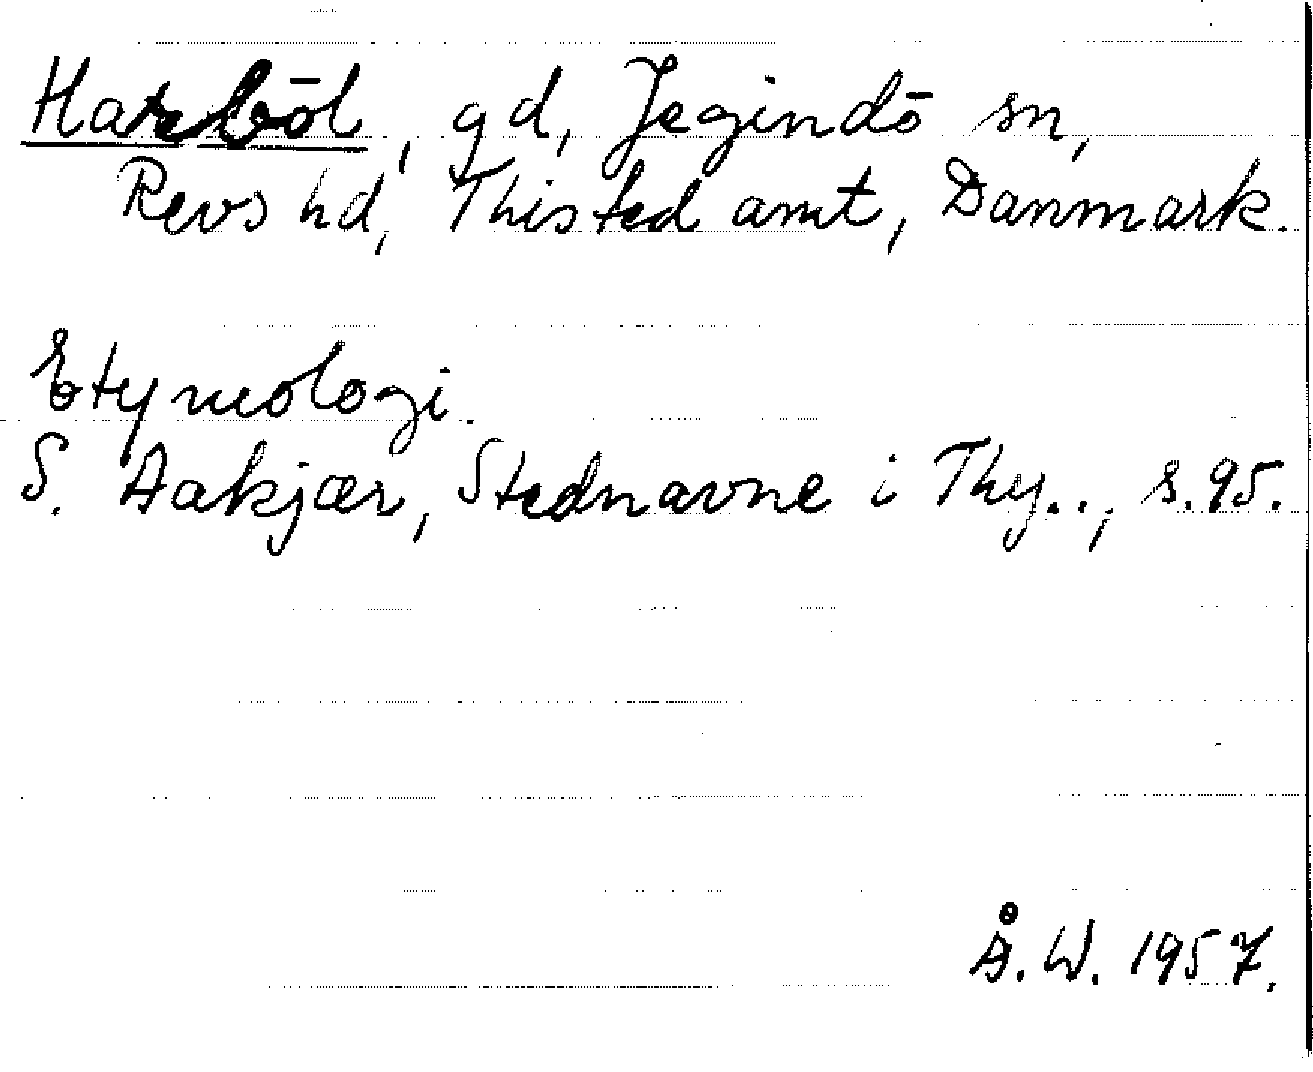 Harbōl, gd, Jegindō sn,
Refs hd, Thisted amt, Danmark.
Etymologi.
S. Aakjær, Stednavne i Thy.., s. 95.
Å. W. 1957.